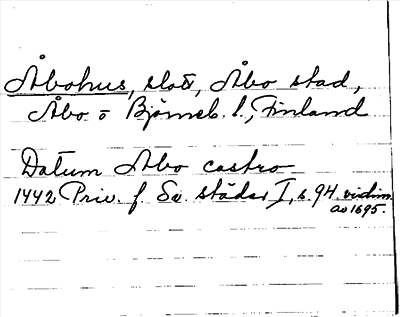 Åbohus, slott, Åbo stad,
Åbo o Björneb. l., Finland
Datum Abo castro
1442 Priv. f. Sv. städer I, s. 94. vidim.
av 1695.